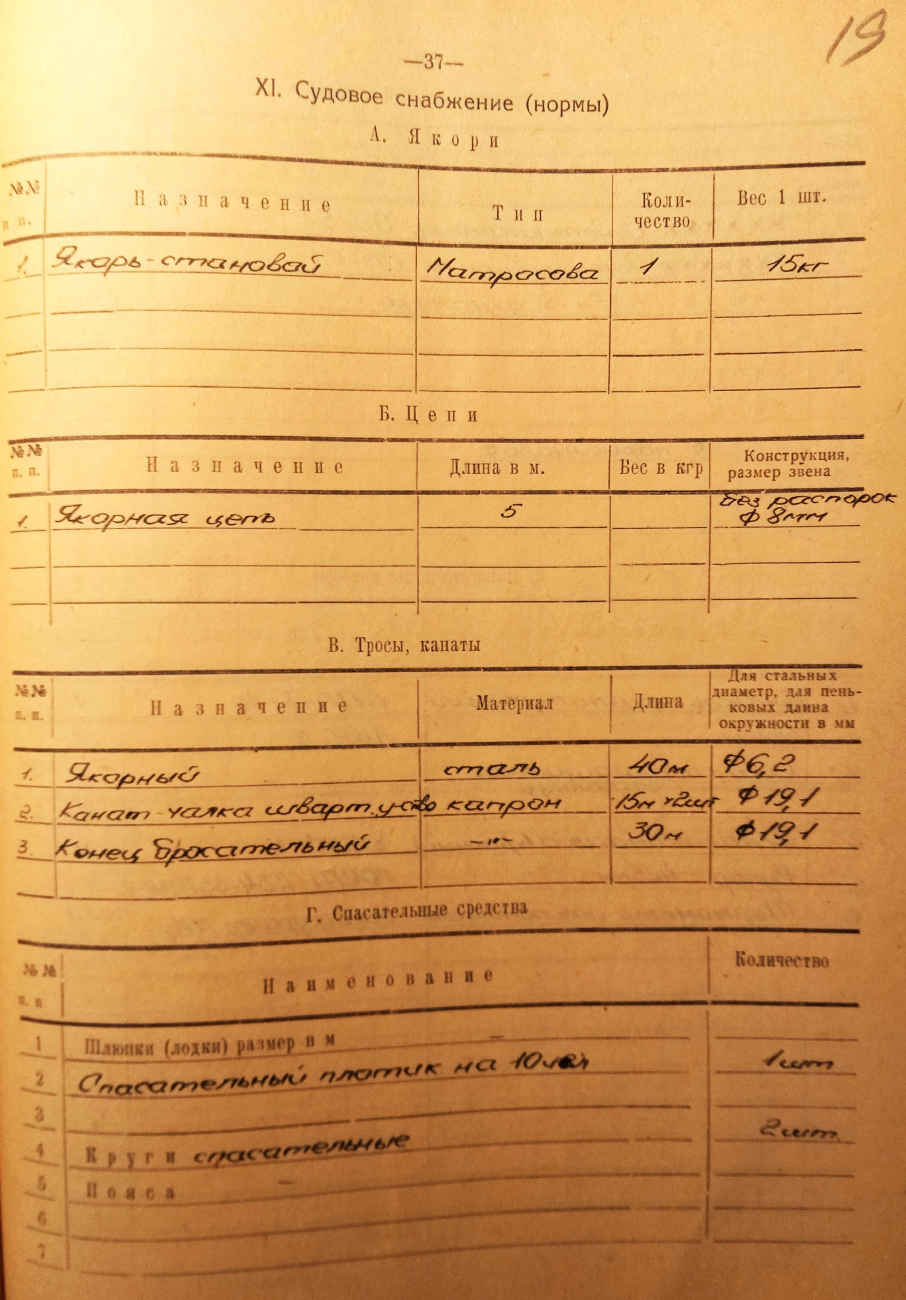 19
—37—
XI. Судовое снабжение (нормы)
А. Якори
№№ п п. Назначение Тип Коли-чество Вес 1 шт.
1. Якорь-становой Матросова 1 15кг
Б. Цепи
№№ п. п. Назначение Длина в м. Вес в кгр Конструкция, размер звена
1. Якорная цепь 5 без распорок ф 8мм
В. Тросы, канаты
№№ п. п. Назначение Материал Длина Для стальных диаметр, для пень-ковых длина окружности в мм
1. Якорный сталь 40м ф6,2
2. Канат-чалка шварт. у-во капрон 15м × 2шт ф19,1
3. Конец бросательный —"— 30м ф19,1
Г. Спасательные средства
№№ п. п Наименование Количество
1 Шлюпки (лодки) размер в м —
2 Спасательный плотик на 10чел 1шт
3
4 Круги спасательные 2шт.
5 Пояса —
6
7